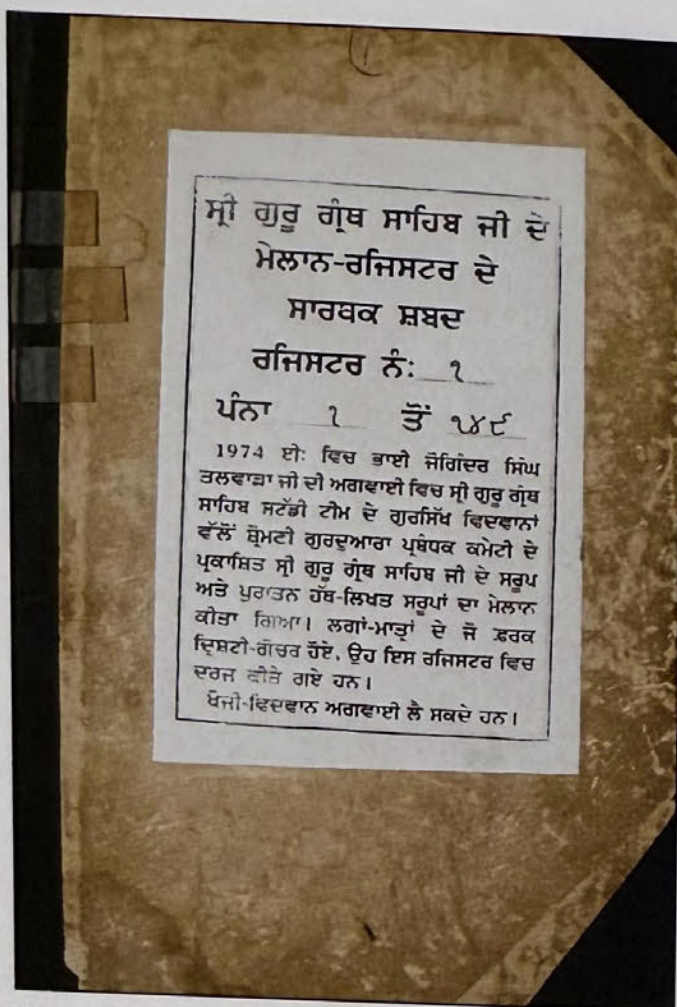 ੧
ਸ੍ਰੀ ਗੁਰੂ ਗ੍ਰੰਥ ਸਾਹਿਬ ਜੀ ਦੇ
ਮੇਲਾਨ-ਰਜਿਸਟਰ ਦੇ
ਸਾਰਥਕ ਸ਼ਬਦ
ਰਜਿਸਟਰ ਨੰ: ੧
ਪੰਨਾ ੧ ਤੋਂ ੧੪੯
1974 ਈ: ਵਿਚ ਭਾਈ ਜੋਗਿੰਦਰ ਸਿੰਘ
ਤਲਵਾੜਾ ਜੀ ਦੀ ਅਗਵਾਈ ਵਿਚ ਸ੍ਰੀ ਗੁਰੂ ਗ੍ਰੰਥ
ਸਾਹਿਬ ਸਟੱਡੀ ਟੀਮ ਦੇ ਗੁਰਸਿੱਖ ਵਿਦਵਾਨਾਂ
ਵੱਲੋਂ ਸ਼੍ਰੋਮਣੀ ਗੁਰਦੁਆਰਾ ਪ੍ਰਬੰਧਕ ਕਮੇਟੀ ਦੇ
ਪ੍ਰਕਾਸ਼ਿਤ ਸ੍ਰੀ ਗੁਰੂ ਗ੍ਰੰਥ ਸਾਹਿਬ ਜੀ ਦੇ ਸਰੂਪ
ਅਤੇ ਪੁਰਾਤਨ ਹੱਥ-ਲਿਖਤ ਸਰੂਪਾਂ ਦਾ ਮੇਲਾਨ
ਕੀਤਾ ਗਿਆ। ਲਗਾਂ-ਮਾਤ੍ਰਾਂ ਦੇ ਜੋ ਫ਼ਰਕ
ਦ੍ਰਿਸ਼ਟੀ-ਗੋਚਰ ਹੋਏ, ਉਹ ਇਸ ਰਜਿਸਟਰ ਵਿਚ
ਦਰਜ ਕੀਤੇ ਗਏ ਹਨ।
ਖੋਜੀ-ਵਿਦਵਾਨ ਅਗਵਾਈ ਲੈ ਸਕਦੇ ਹਨ।